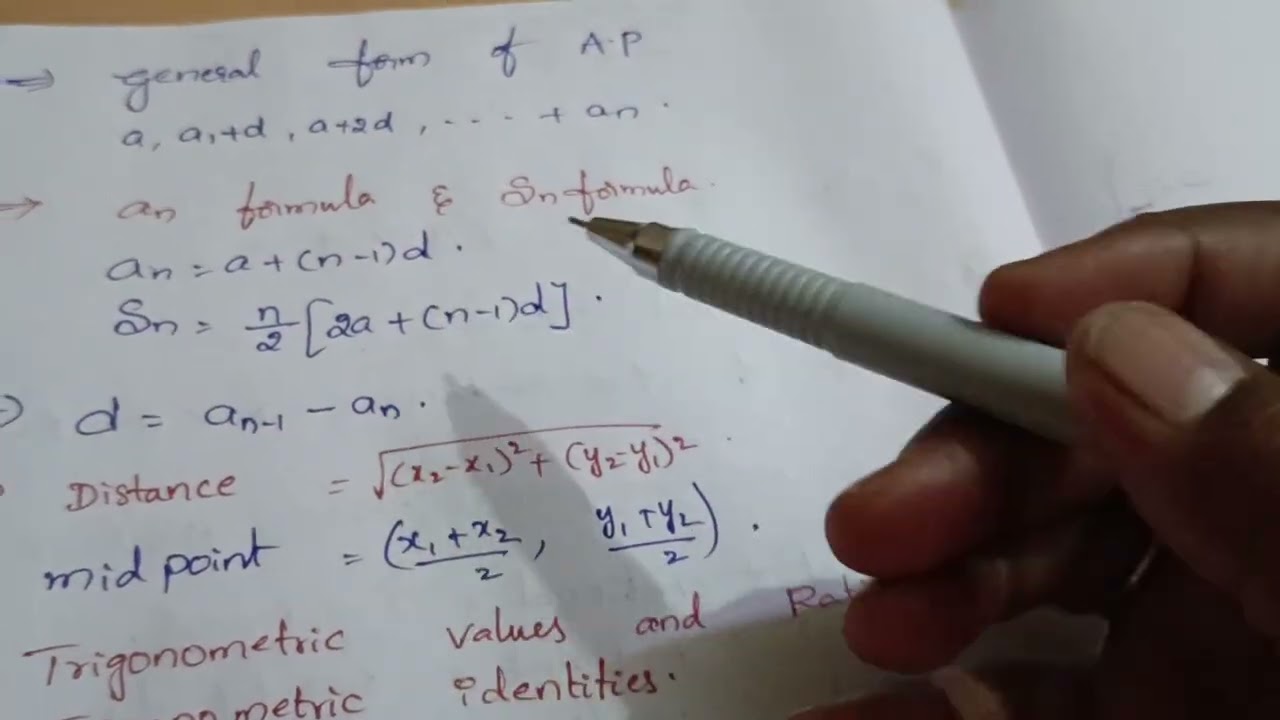 ⇒ general form of A.P
a, a₁+d, a+2d, .... + an.
⇒ an formula & Sn formula.
an = a + (n-1)d.
Sn = n/2 [2a + (n-1)d].
d = an-1 - an.
Distance = √(x₂-x₁)² + (y₂-y₁)².
mid point = (x₁+x₂/2, y₁+y₂/2).
Trigonometric values and
metric identities.